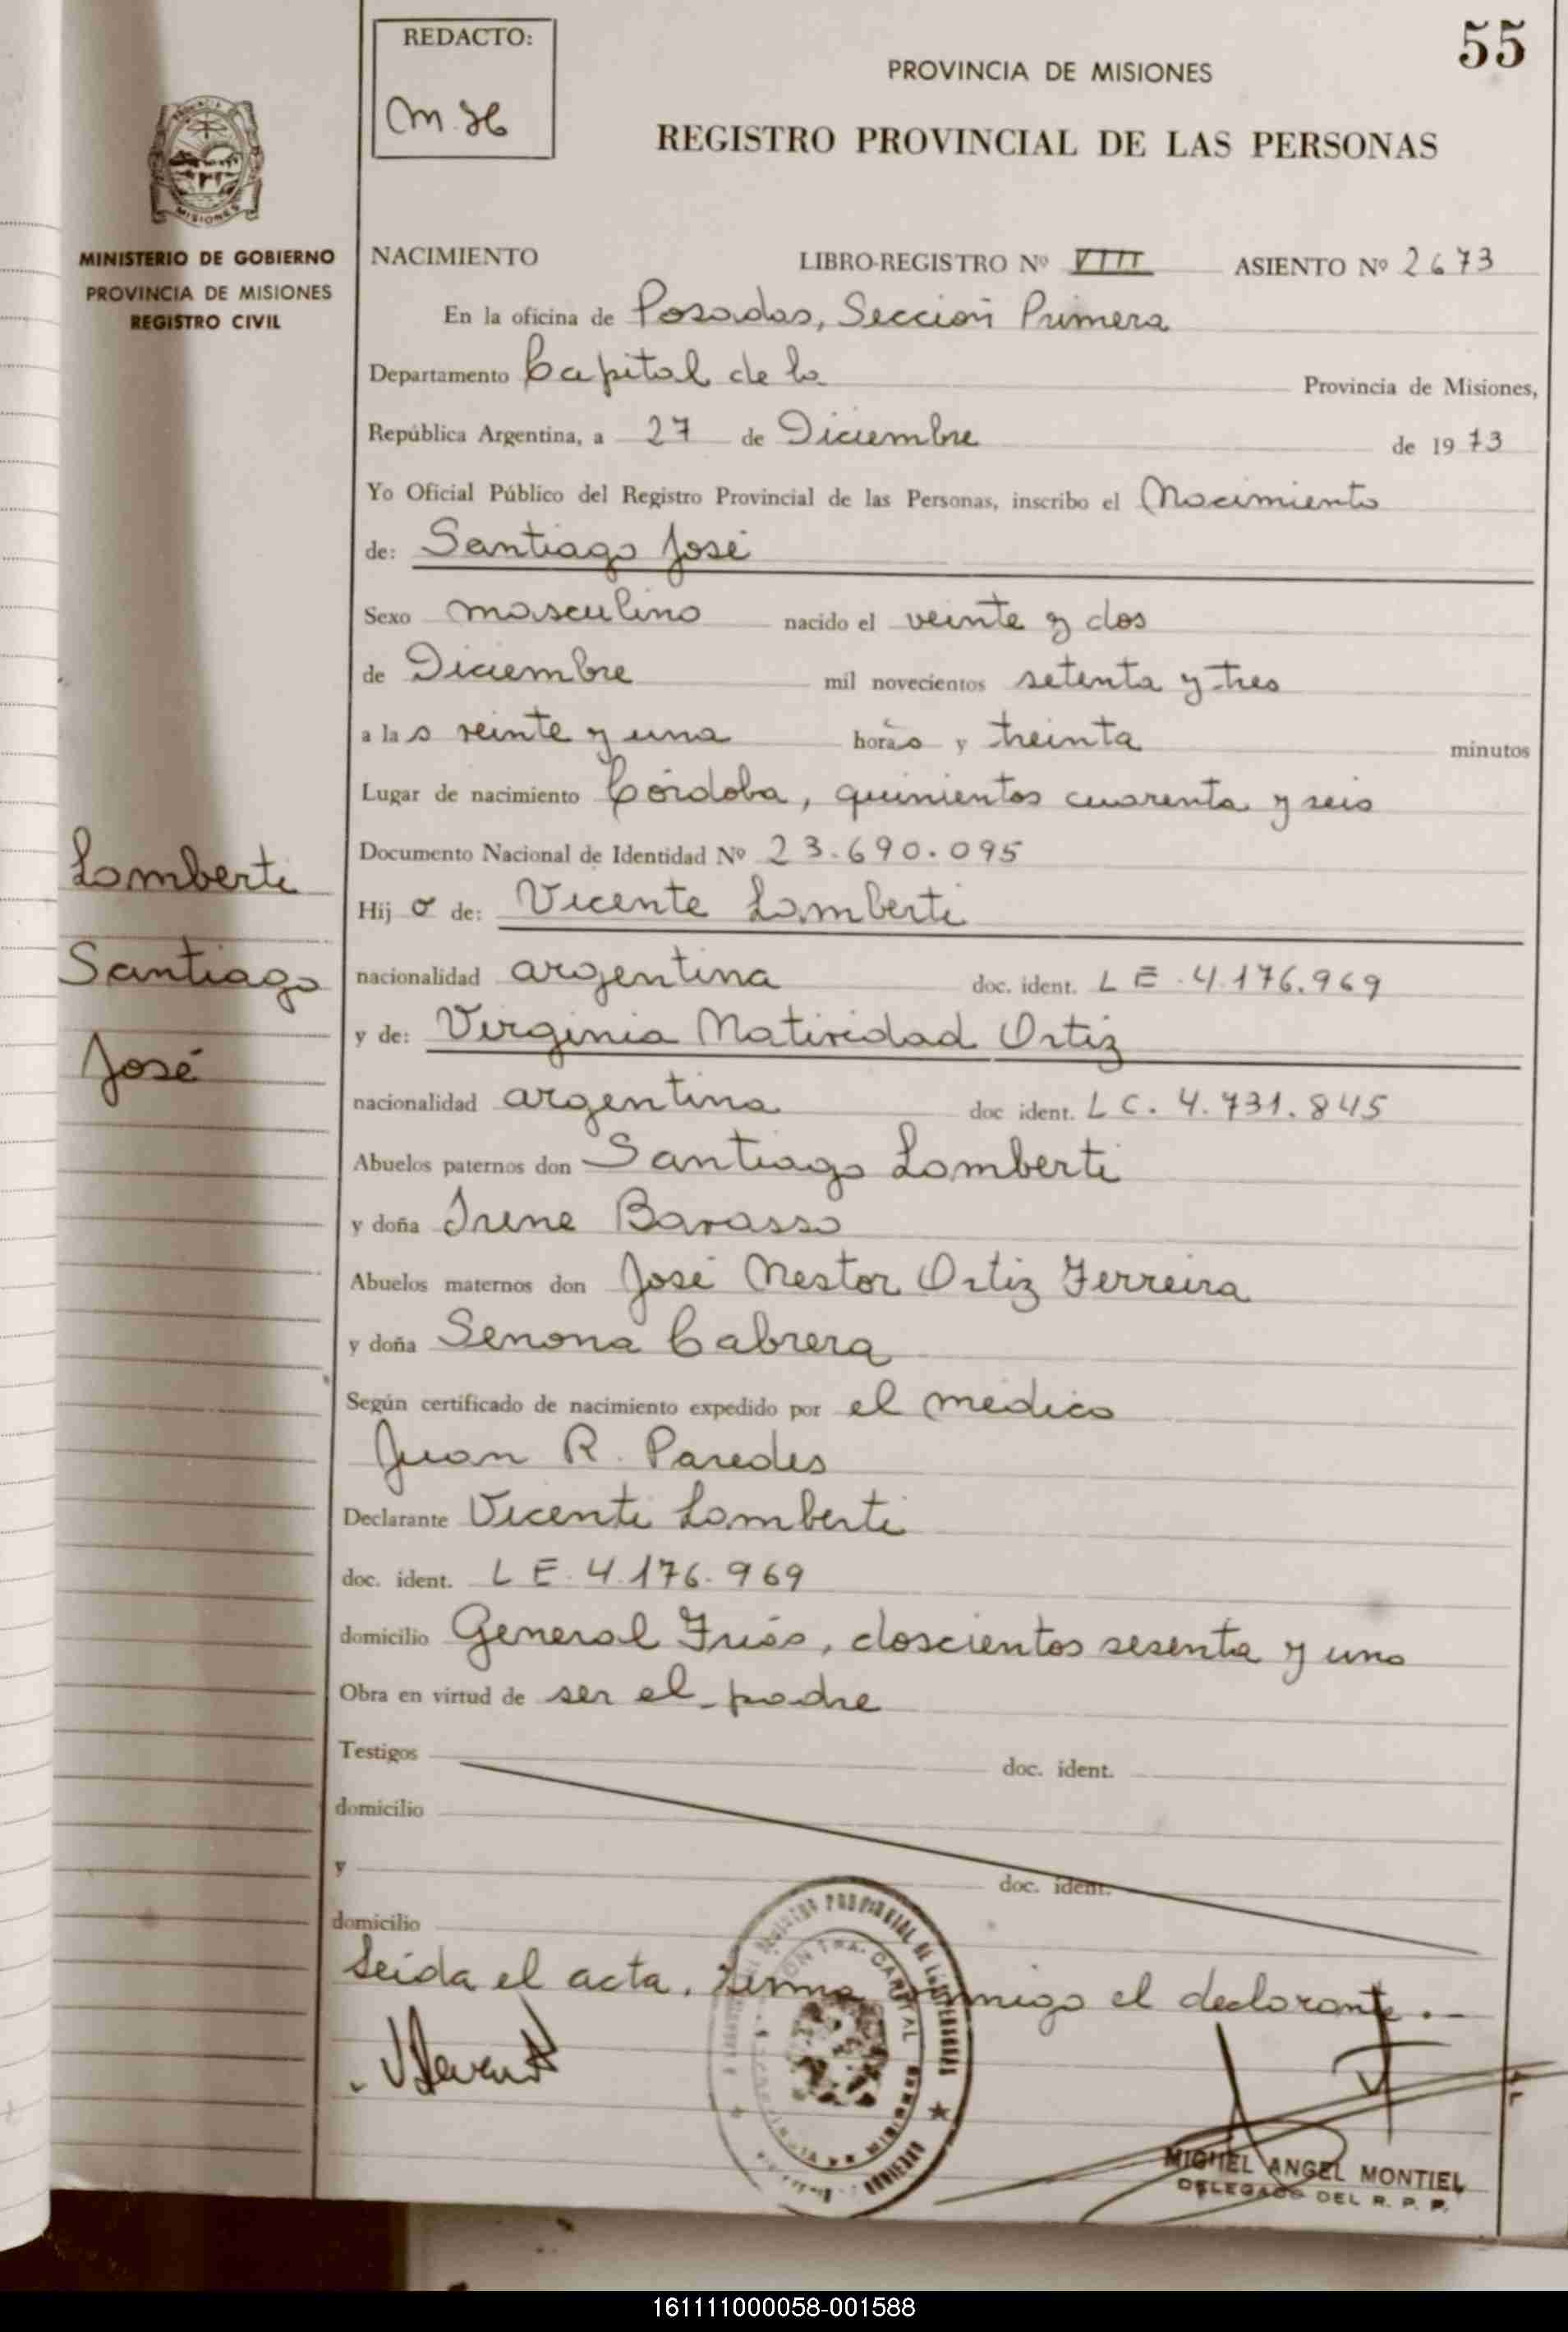 REDACTO:
M. H
55
PROVINCIA DE MISIONES
REGISTRO PROVINCIAL DE LAS PERSONAS
MISIONES
MINISTERIO DE GOBIERNO
PROVINCIA DE MISIONES
REGISTRO CIVIL
NACIMIENTO LIBRO-REGISTRO Nº VIII ASIENTO Nº 2673
En la oficina de Posadas, Sección Primera
Departamento Capital de la Provincia de Misiones,
República Argentina, a 27 de Diciembre de 1973
Yo Oficial Público del Registro Provincial de las Personas, inscribo el Nacimiento
de: Santiago José
Sexo masculino nacido el veinte y dos
de Diciembre mil novecientos setenta y tres
a las veinte y una horas y treinta minutos
Lugar de nacimiento Córdoba, quinientos cuarenta y seis
Documento Nacional de Identidad Nº 23.690.095
Lamberti
Santiago
José
Hijo de: Vicente Lamberti
nacionalidad argentina doc. ident. L E. 4.176.969
y de: Virginia Natividad Ortiz
nacionalidad argentina doc ident. L C. 4.731.845
Abuelos paternos don Santiago Lamberti
y doña Irene Barasso
Abuelos maternos don José Nestor Ortiz Ferreira
y doña Senona Cabrera
Según certificado de nacimiento expedido por el medico
Juan R. Paredes
Declarante Vicente Lamberti
doc. ident. L E. 4.176.969
domicilio General Frías, doscientos sesenta y uno
Obra en virtud de ser el padre
Testigos doc. ident.
domicilio
y doc. ident.
domicilio
Leida el acta, firma conmigo el declarante.-
MIGUEL ANGEL MONTIEL
DELEGADO DEL R. P. P.
161111000058-001588